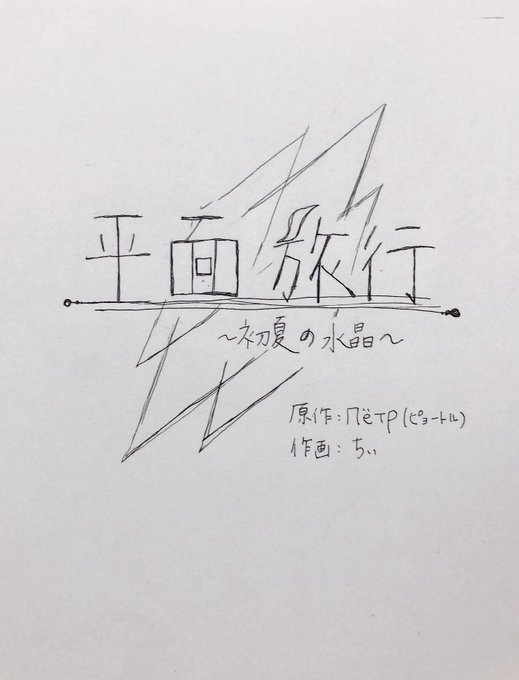 平面旅行
～初夏の水晶～
原作:Пётр(ピョートル)
作画:ちぃ